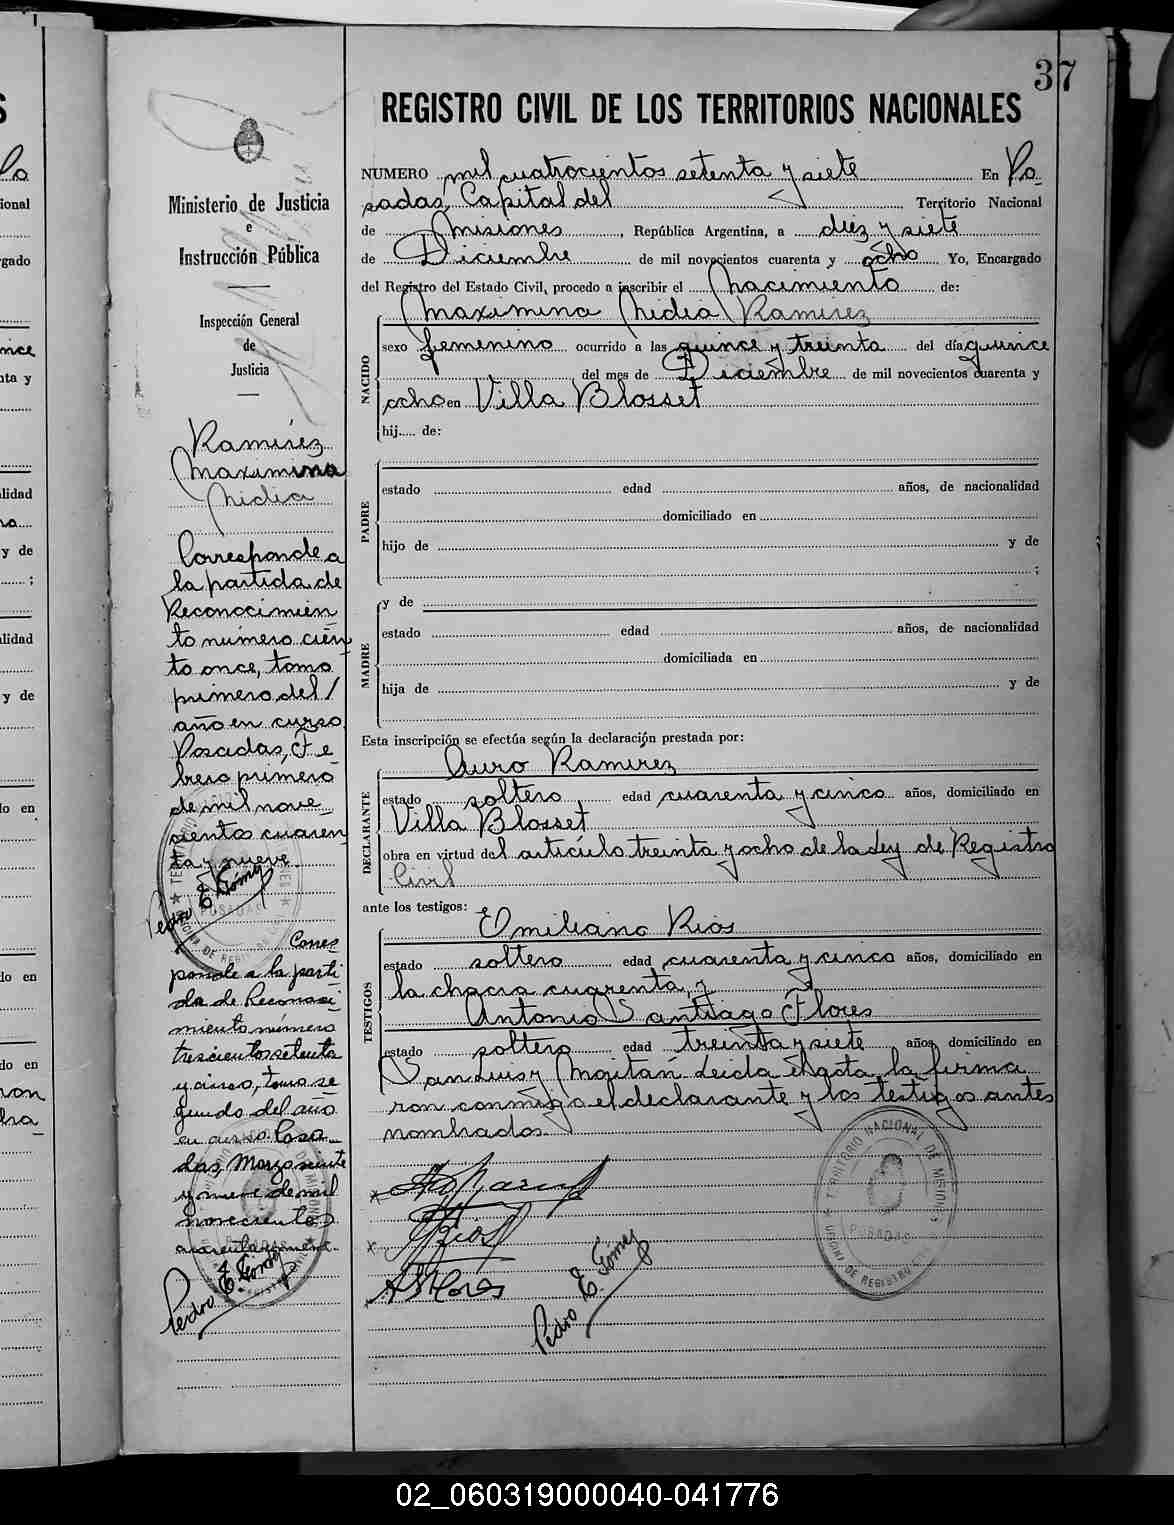 37
REGISTRO CIVIL DE LOS TERRITORIOS NACIONALES
Ministerio de Justicia
e
Instrucción Pública
Inspección General
de
Justicia
Ramírez
Maximina
Nidia
Corresponde a
la partida de
Reconocimien
to número cien
to once, tomo
primero del /
año en curso
Posadas, Fe
brero primero
de mil nove
cientos cuaren
ta y nueve.
Pedro E. Gómez
Corres
ponde a la parti
da de Reconoci
miento número
trescientos setenta
y cinco, tomo se
gundo del año
en curso. Posa
das, Marzo veinte
y nueve de mil
novecientos
cuarenta y nueve.
Pedro E. Gómez
NUMERO mil cuatrocientos setenta y siete En Po
sadas, Capital del Territorio Nacional
de Misiones, República Argentina, a diez y siete
de Diciembre de mil novecientos cuarenta y ocho Yo, Encargado
del Registro del Estado Civil, procedo a inscribir el nacimiento de:
Maximina Nidia Ramírez
NACIDO
sexo femenino ocurrido a las quince y treinta del día quince
del mes de Diciembre de mil novecientos cuarenta y
ocho en Villa Blosset
hij..... de:
PADRE
estado edad años, de nacionalidad
domiciliado en
hijo de y de
;
MADRE
y de
estado edad años, de nacionalidad
domiciliada en
hija de y de
Esta inscripción se efectúa según la declaración prestada por:
DECLARANTE
Auro Ramírez
estado soltero edad cuarenta y cinco años, domiciliado en
Villa Blosset
obra en virtud del artículo treinta y ocho de la Ley de Registro
Civil
ante los testigos:
TESTIGOS
Emiliano Rios
estado soltero edad cuarenta y cinco años, domiciliado en
la chacra cuarenta, y
Antonio Santiago Flores
estado soltero edad treinta y siete años domiciliado en
San Luis y Moitán Leida el acta, la firma
ron conmigo el declarante y los testigos antes
nombrados.
A S Flores
Pedro E. Gómez
TERRITORIO NACIONAL DE MISIONES
POSADAS
OFICINA DE REGISTRO CIVIL
02_060319000040-041776